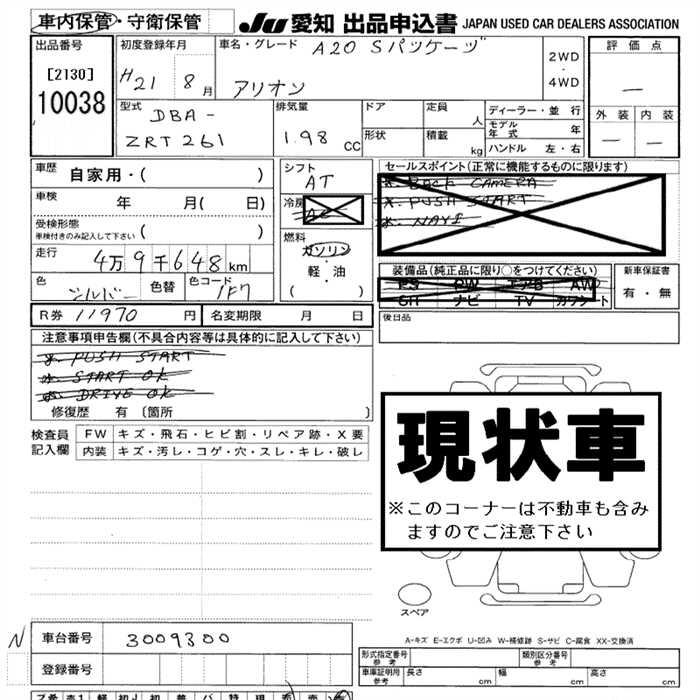 車内保管・守衛保管 JU 愛知 出品申込書 JAPAN USED CAR DEALERS ASSOCIATION
出品番号 初度登録年月 車名・グレード A20 Sパッケージ 評価点
[2130] H21 8月 アリオン 2WD・4WD —
10038 型式 DBA- 排気量 ドア 定員 人 ディーラー・並行 外装 内装
ZRT261 1.98 CC 形状 積載 kg モデル年式 年 — —
ハンドル 左・右
車歴 自家用・( ) シフト AT セールスポイント(正常に機能するものに限ります)
車検 年 月( 日) 冷房 AC *. BACK CAMERA
*. PUSH START
*. NAVI
受検形態 ( )
車検付きのみ記入して下さい
燃料 ガソリン・軽・油 ( )
走行 4万9千648km
装備品(純正品に限り○をつけてください) 新車保証書
PS PW エアB AW 有・無
SR ナビ TV カワシート
色 シルバー 色替 色コード 1F7
後日品
R券 11970 円 名変期限 月 日
注意事項申告欄(不具合内容等は具体的に記入して下さい)
*. PUSH START
*. START OK
*. DRIVE OK
修復歴 有 〔箇所 〕
検査員記入欄 FW キズ・飛石・ヒビ割・リペア跡・X要
内装 キズ・汚レ・コゲ・穴・スレ・キレ・破レ
現状車
※このコーナーは不動車も含み
ますのでご注意下さい
スペア
A-キズ E-エクボ U-凹み W-補修跡 S-サビ C-腐食 XX-交換済
N 車台番号 3009300
登録番号
型式指定番号 参考 類別区分番号 参考
車庫証明用 参考 長さ cm 幅 cm 高さ cm